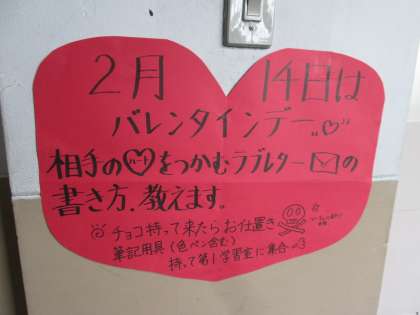 2月 14日は
バレンタインデー
相手のハートをつかむラブレターの
書き方、教えます。
チョコ持って来たらお仕置き
筆記用具(色ペン含む)
持って第1学習室に集合